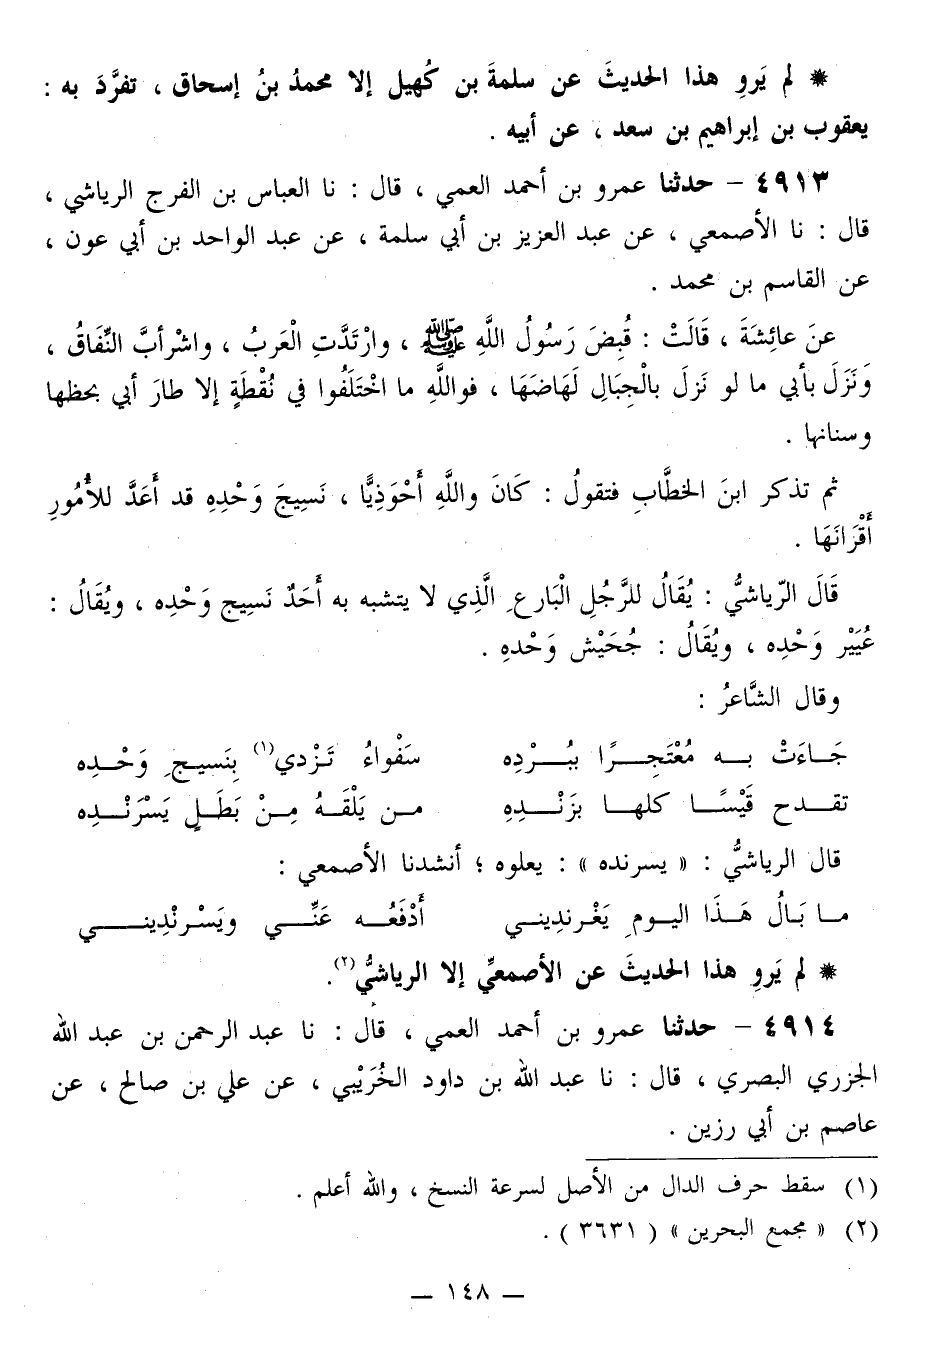 * لم يَروِ هذا الحديثَ عن سلمةَ بن كُهيل إلا محمدُ بنُ إسحاق ، تفرَّدَ به :
يعقوب بن إبراهيم بن سعد ، عن أبيه .
٤٩١٣ - حدثنا عمرو بن أحمد العمي ، قال : نا العباس بن الفرج الرياشي ،
قال : نا الأصمعي ، عن عبد العزيز بن أبي سلمة ، عن عبد الواحد بن أبي عون ،
عن القاسم بن محمد .
عنَ عائِشَةَ ، قَالَتْ : قُبِضَ رَسُولُ اللَّهِ ﷺ ، وارْتَدَّتِ الْعَرَبُ ، واشْرأبَّ النِّفَاقُ ،
وَنَزَلَ بأبي ما لو نَزلَ بالْجِبَالِ لَهَاضَهَا ، فواللَّهِ ما اخْتَلَفُوا في نُقْطَةٍ إلا طارَ أبي بحظها
وسنانها .
ثم تذكر ابنَ الخطَّابِ فتقولُ : كَانَ واللَّهِ أَحْوَذِيًّا ، نَسِيجَ وَحْدِهِ قد أَعَدَّ للأُمُورِ
أَقْرَانَهَا .
قَالَ الرّياشيُّ : يُقَالُ للرَّجُلِ الْبَارعِ الَّذِي لا يتشبه به أَحَدٌ نَسِيج وَحْدِه ، ويُقَالُ :
عُيَيْر وَحْدِه ، ويُقَالُ : جُحَيْش وَحْدهِ .
وقال الشَّاعرُ :
جَاءَتْ به مُعْتَجِرًا ببُرْدِه سَفْواءُ تَرْدي(١) بِنَسيجِ وَحْده
تقدح قَيْسًا كلها بزَنْدِهِ من يَلْقَهُ مِنْ بَطَلٍ يَسْرَنْدِه
قال الرياشيُّ : « يسرنده » : يعلوه ؛ أنشدنا الأصمعي :
ما بَالُ هَذَا اليومِ يَغْرنديني أَدْفَعُه عَنِّي ويَسْرنْدِيني
* لم يَروِ هذا الحديثَ عن الأصمعيِّ إلا الرياشيُّ(٢).
٤٩١٤ - حدثنا عمرو بن أحمد العمي ، قال : نا عبد الرحمن بن عبد الله
الجزري البصري ، قال : نا عبد الله بن داود الخُرَيْبي ، عن علي بن صالح ، عن
عاصم بن أبي رزين .
(١) سقط حرف الدال من الأصل لسرعة النسخ ، والله أعلم .
(٢) « مجمع البحرين » ( ٣٦٣١ ) .
— ١٤٨ —